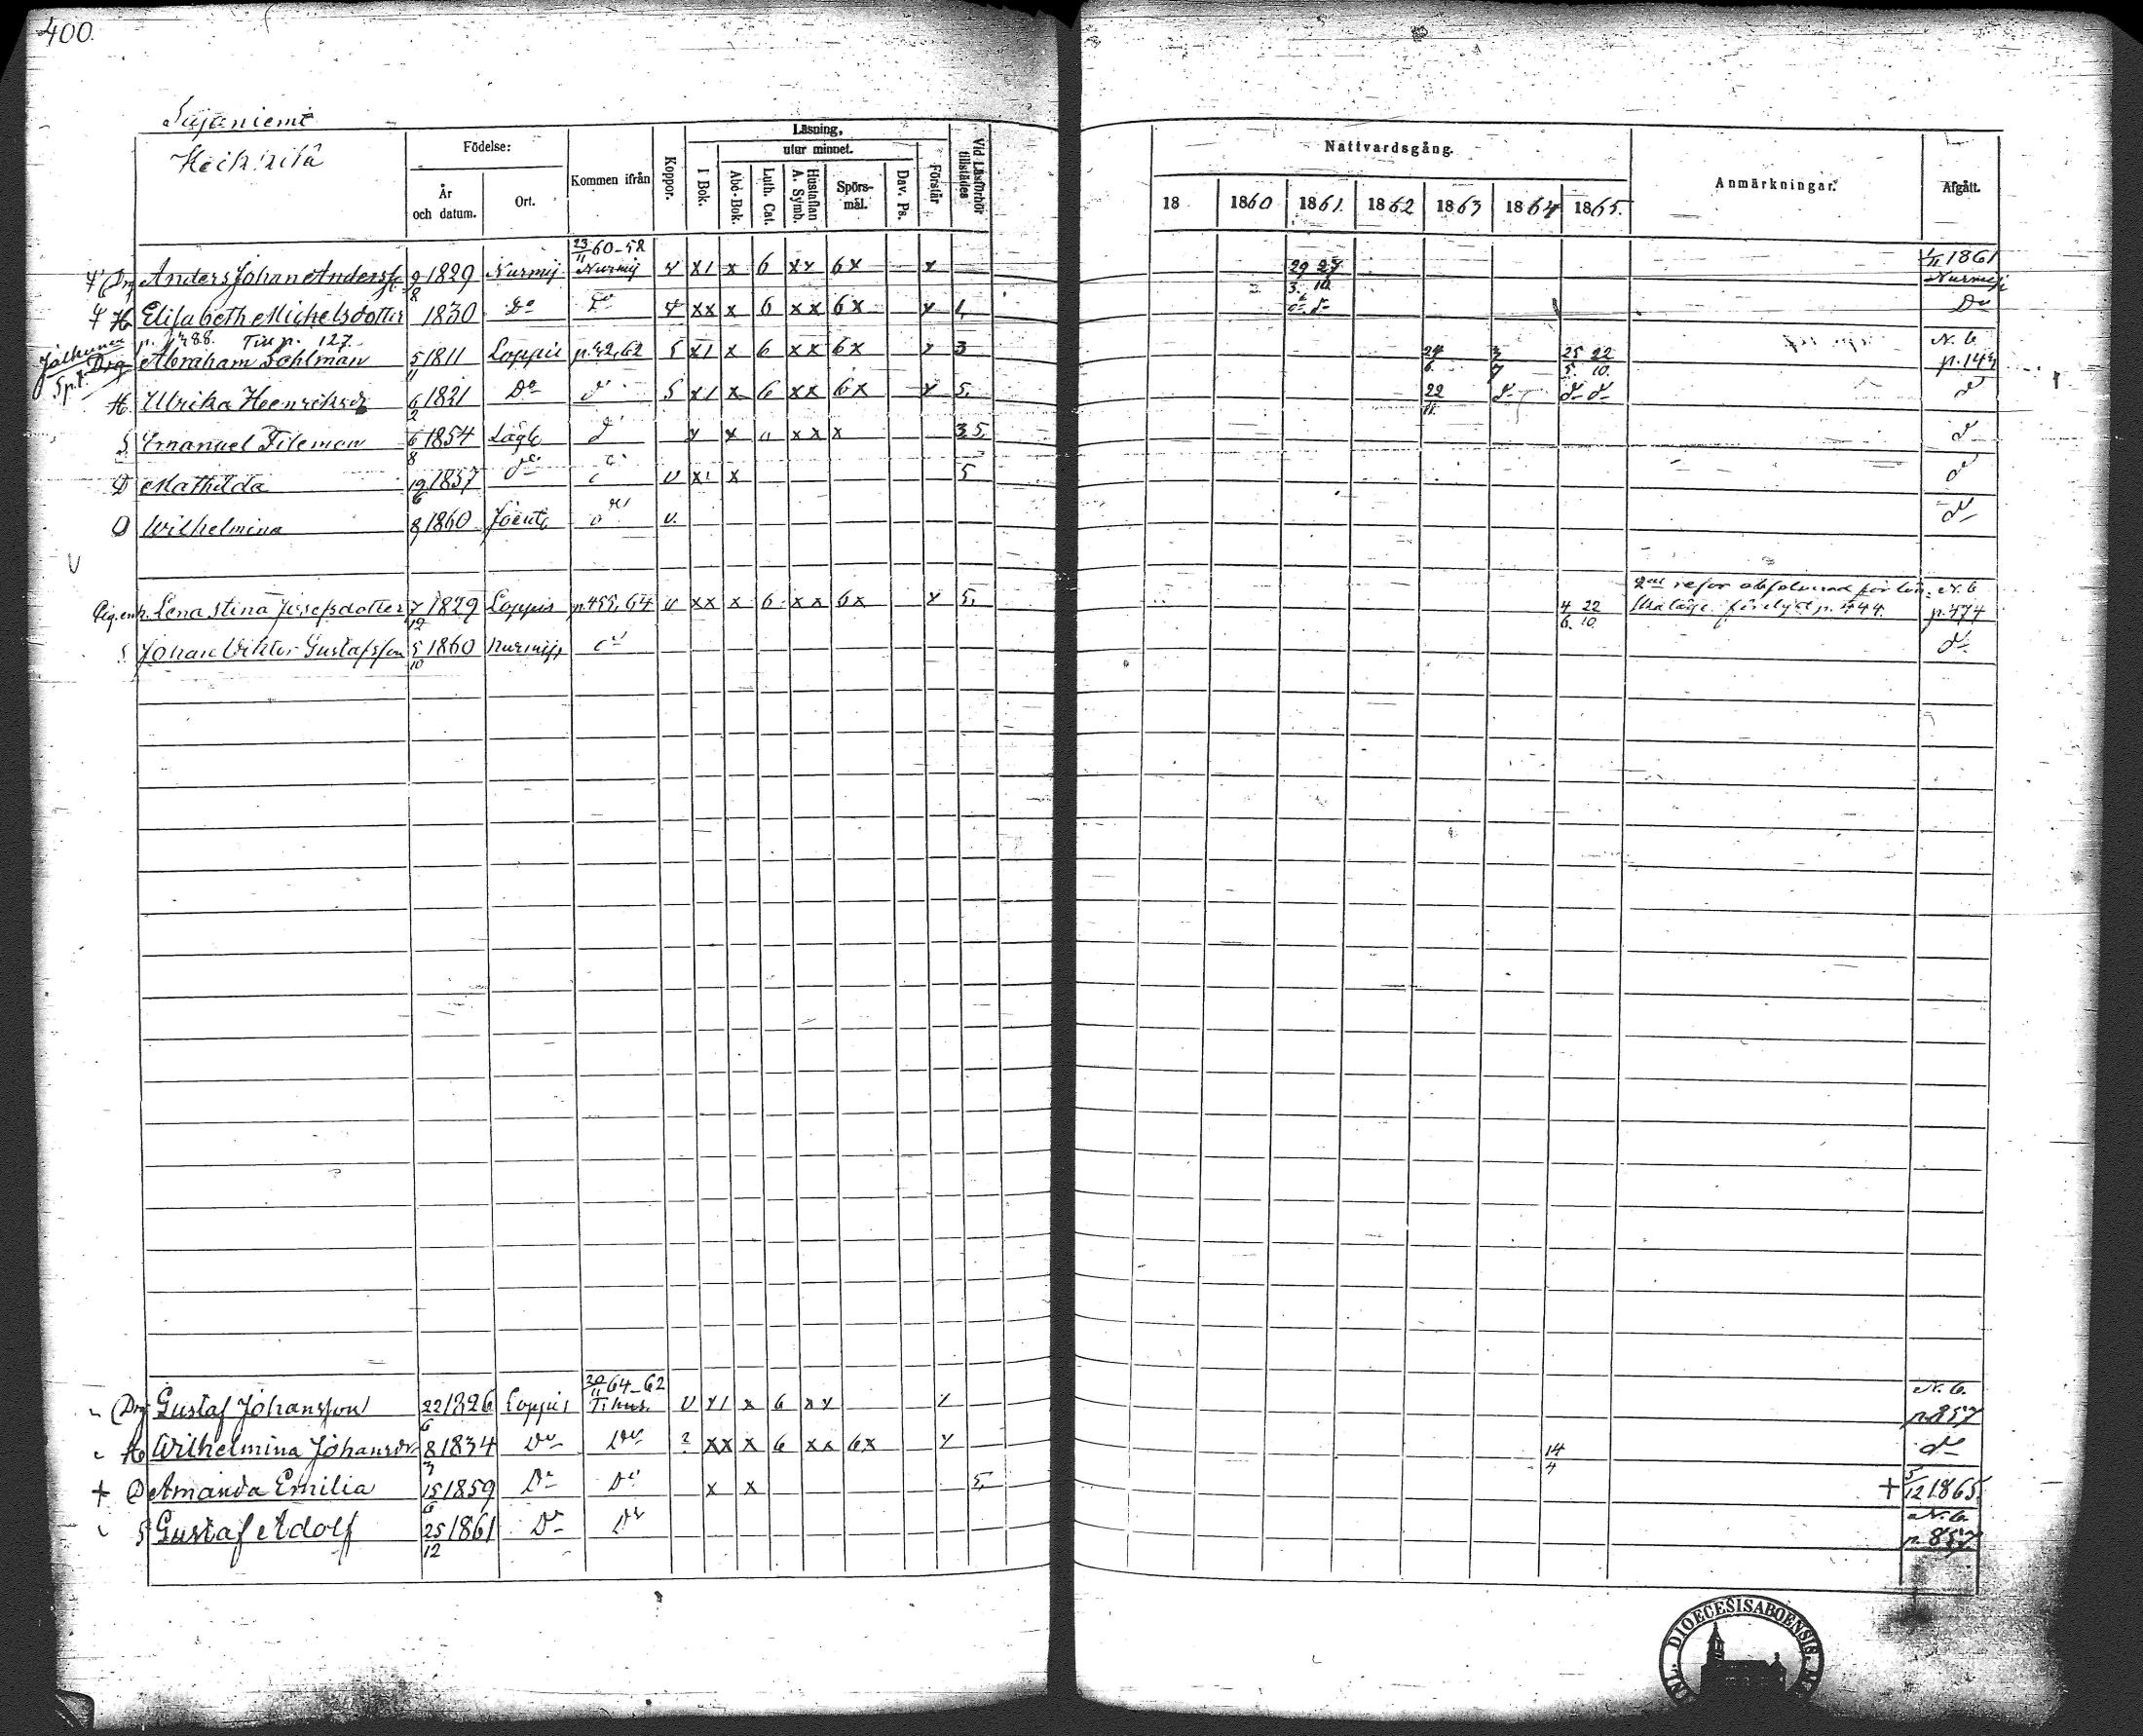 400.
Sajaniemi
Heikkilä
Födelse:
År och datum.
Ort.
Kommen ifrån
Koppor.
Läsning,
utur minnet.
I Bok.
Abd-Bok.
Luth. Cat.
Hustaflan A. Symb.
Spörs-mål.
Dav. Ps.
Förstår
Vid Läsförhör tillstädes
Nattvardsgång.
18 1860 1861. 1862 1863 1864 1865.
Anmärkningar.
Afgått.
Drg Anders Johan Andersf 9/8 1829 Nurmij 23/11 60-58 Nurmij x1 x 6 xx 6x x 29/3. 27/10 1861 Nurmijj
H Elisabeth Michelsdotter 1830 Do Do xx x 6 xx 6x x 1, Do
p. 488. Tiu p. 127.
Drg Abraham Fohlman 5/11 1811 Loppis p. 42, 62 5 x1 x 6 xx 6x x 3 24/6 3/7 25/5. 22/10. N. b p. 144
H. Ulrika Henriksdr 6/2 1821 Do do 5 x1 x 6 xx 6x x 5. 22/11. do do do do
S Emanuel Filemon 6/8 1854 Lägl do x x xxx 3 5. do
D Mathilda 19/6 1857 do do v x1 x 5 do
D Wilhelmina 8/9 1860 Joent do v. do
Lena Stina Josefsdotter 7/12 1829 Loppis p. 455, 64 v xx x 6 xx 6x x 5. 4/6. 22/10. p. 444. N. b p. 474
S Johan Viktor Gustafsson 5/10 1860 Nurmijj do do
Drg Gustaf Johansson 22/6 1826 Loppis 30/11 64-62 Tihus. v x1 x 6 xx x N. b. p. 857
H Wilhelmina Johansdr 8/3 1834 Do Do ? xx x 6 xx 6x x 14/4 do
+ D Amanda Emilia 15/6 1859 Do Do x x 5, + 5/12 1865.
S Gustaf Adolf 25/12 1861 Do Do N. b. p. 857
DIOECESIS ABOENSIS